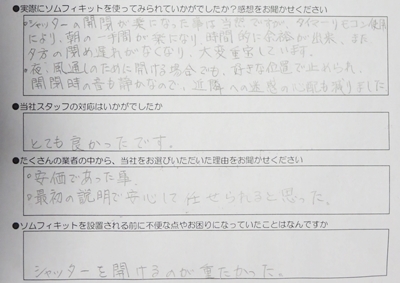 ●実際にソムフィキットを使ってみられていかがでしたか？感想をお聞かせください
・シャッターの開閉が楽になった事は当然ですが、タイマーリモコン使用
により、朝の一時間が楽になり時間的に余裕が出来、また
夕方の閉め遅れがなくなり、大変重宝しています。
・夜、風通しのために開ける場合でも、好きな位置で止められ、
開閉時の音も静かなので、近隣への迷惑の心配も減りました
●当社スタッフの対応はいかがでしたか
とても良かったです。
●たくさんの業者の中から、当社をお選びいただいた理由をお聞かせください
・安価であった事
・最初の説明で安心して任せられると思った。
●ソムフィキットを設置される前に不便な点やお困りになっていたことはなんですか
シャッターを開けるのが重たかった。